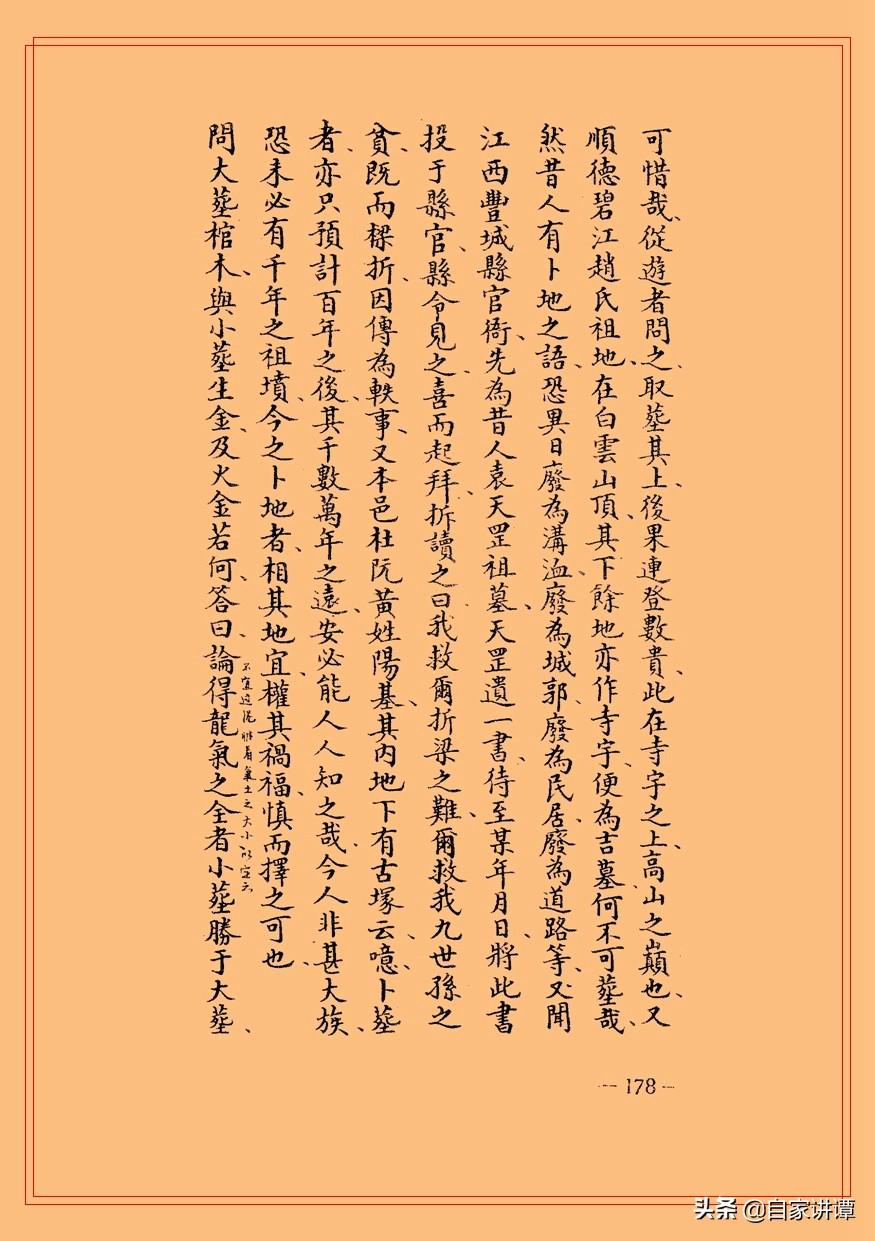 可惜哉、從遊者問之、取塟其上、後果連登數貴、此在寺字之上、高山之巔也、又
順德碧江趙氏祖地、在白雲山頂、其下餘地亦作寺字、便為吉墓、何不可塟哉、
然昔人有卜地之語、恐異日廢為溝洫、廢為城郭、廢為民居、廢為道路等、又聞
江西豐城縣官衙、先為昔人袁天罡祖墓、天罡遺一書、待至某年月日、將此書
投于縣官、縣令見之、喜而起拜、拆讀之曰、我救爾折梁之難、爾救我九世孫之
貧、既而樑折、因傳為軼事、又本邑杜阮黃姓陽基、其內地下有古塚云、噫、卜塟
者、亦只預計百年之後、其千數萬年之遠、安必能人人知之哉、今人非甚大族、
恐未必有千年之祖墳、今之卜地者、相其地宜、權其禍福、慎而擇之可也、
問大塟棺木、與小塟生金、及火金若何、答曰、論得龍氣之全者、小塟勝于大塟、
不宜 氣土之大小以定云
— 178 —
头条 @自家讲谭